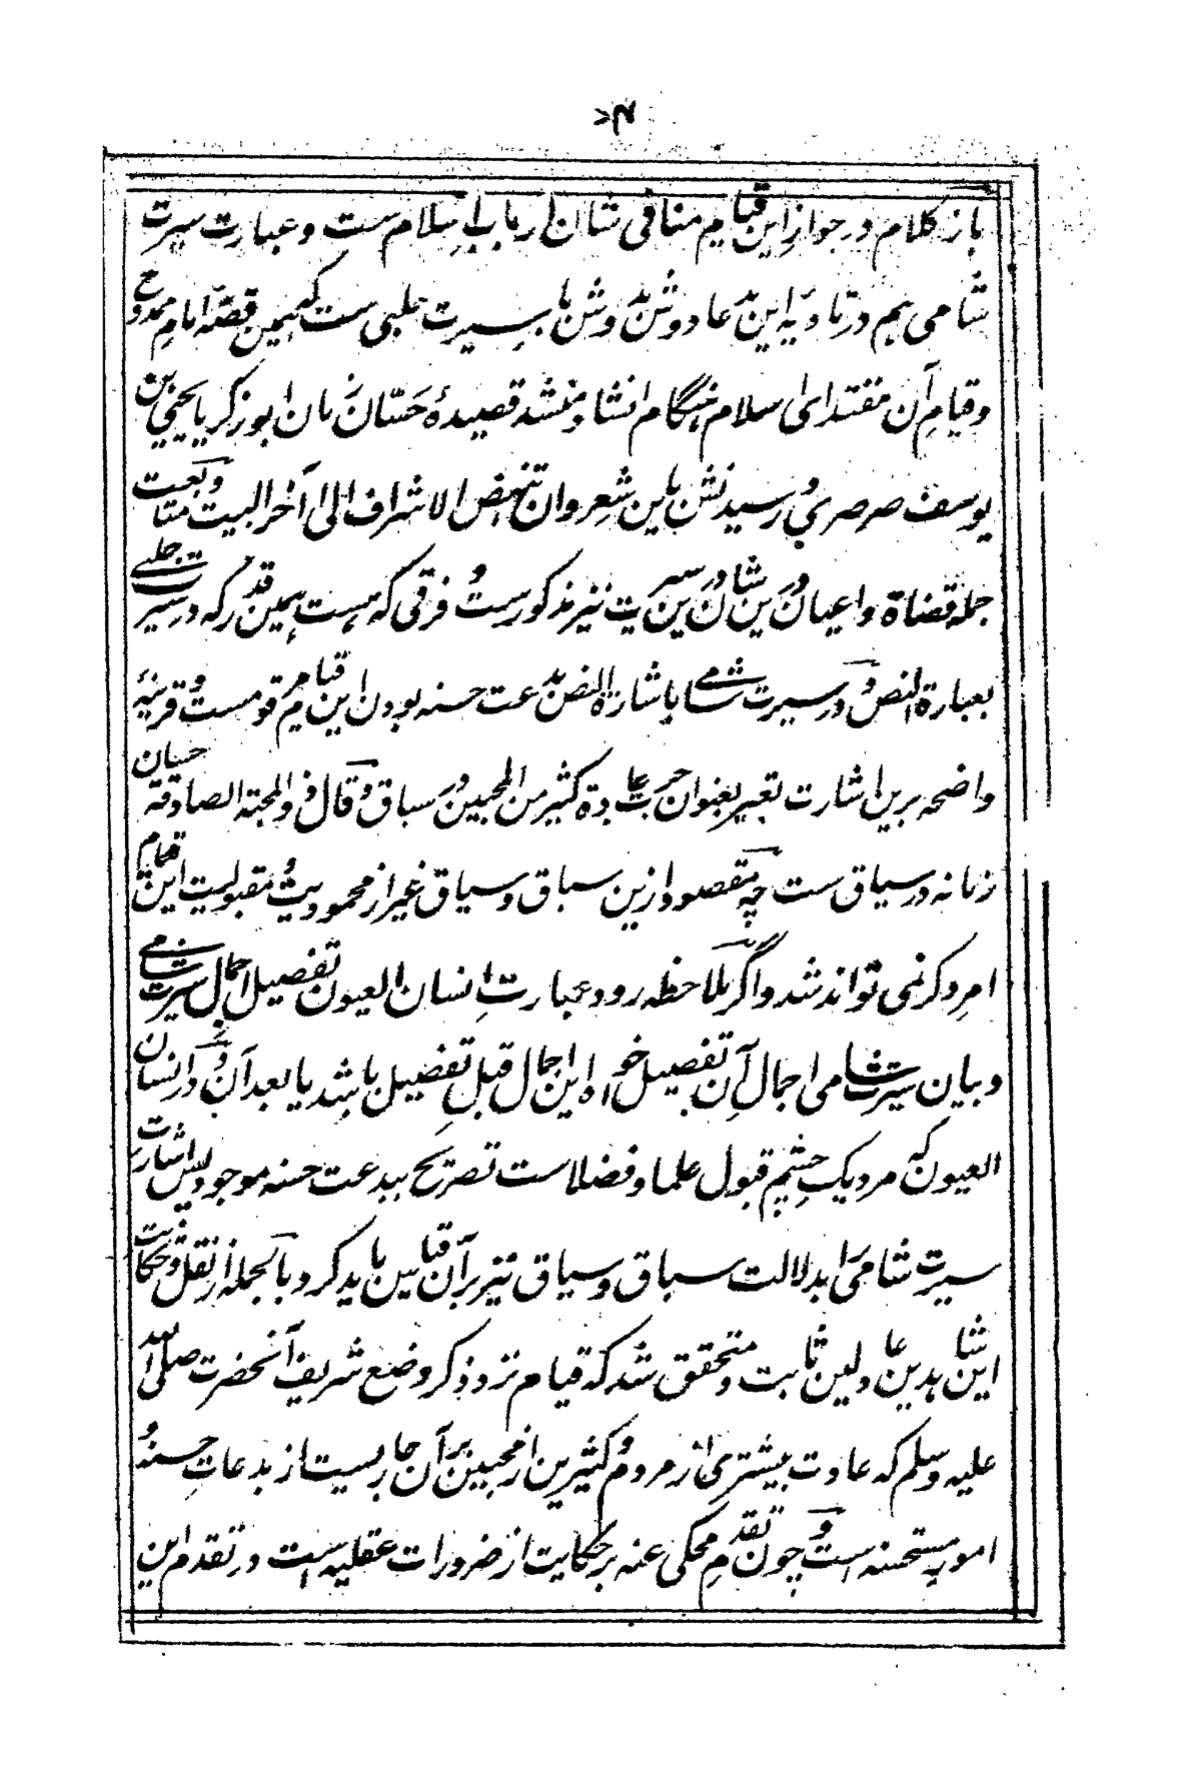 باز کلام در جواز این قیام منافی شان ارباب اسلام ست و عبارت سیرت
شامی هم در تادیه این مدعا دوش بدوش با سیرت حلبی ست که همین قصه امام ممدوح
و قیام آن مقتدای اسلام هنگام انشاد منشد قصیدۀ حسّان زمان ابو زکریا یحیی بن
یوسف صرصری و رسیدنش باین شعر وان تنهض الاشراف الی آخر البیت و متابعت
جمله قضاة و اعیان درین شان درین سیرت نیز مذکورست و فرقی که هست همین قدر که در سیرت حلبی
بعبارة النص و در سیرت شامی باشارة النص بدعت حسنه بودن این قیام مرقومست و قرینۀ
واضحه برین اشارت تعبیر بعنوان جرت عادة کثیر من المحبین در سباق و قال ذو المحبة الصادقة حسان
زمانه در سیاق ست چه مقصود ازین سباق و سیاق غیر از محمودیت و مقبولیت این قیام
امر دگر نمی تواند شد و اگر بملاحظه رود عبارتِ انسان العیون تفصیل اجمال سیرت شامی
و بیان سیرت شامی اجمالِ آن تفصیل خواه این اجمال قبلِ تفصیل باشد یا بعد آن و در انسان
العیون که مردمک چشم قبول علما و فضلاست تصریح ببدعت حسنه موجود پس اشارت
سیرت شامی را بدلالت سباق و سیاق نیز بر آن قیاس باید کرد و بالجمله از نقل و حکایت
این شاهدین عادلین ثابت و متحقق شد که قیام نزد ذکر وضع شریف آنحضرت صلی الله
علیه وسلم که عادت بیشتری از مردم و کثیرین از محبین بر آن جاریست از بدعاتِ حسنه و
امور مستحسنه است و چون تقدمِ محکی عنه بر حکایت از ضرورات عقلیه است در تقدم این